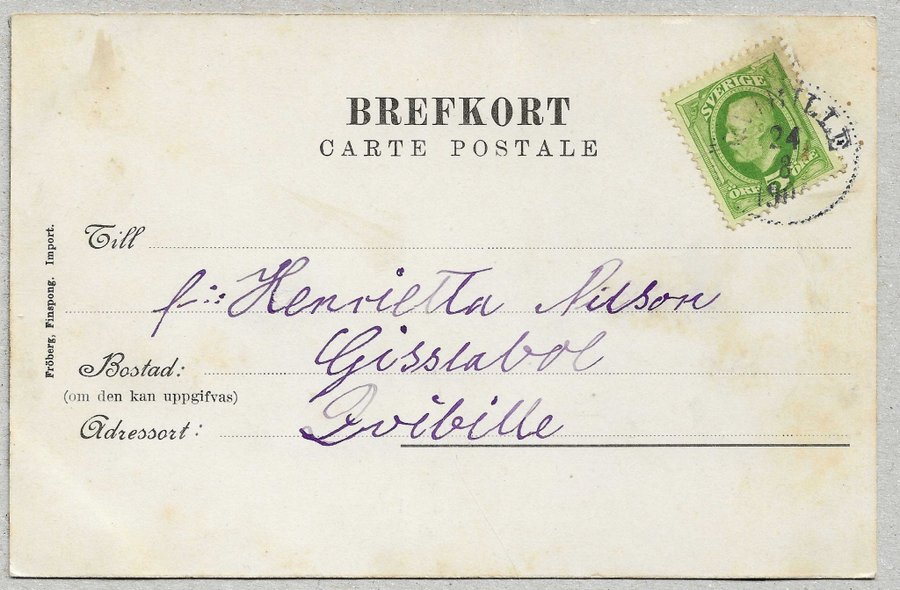 BREFKORT
CARTE POSTALE
SVERIGE
ÖRE 5 ÖRE
24
8
Till
f:: Henrietta Nilson
Gisslabol
Bostad:
(om den kan uppgifvas)
Adressort:
Qvibille
Fröberg, Finspong. Import.